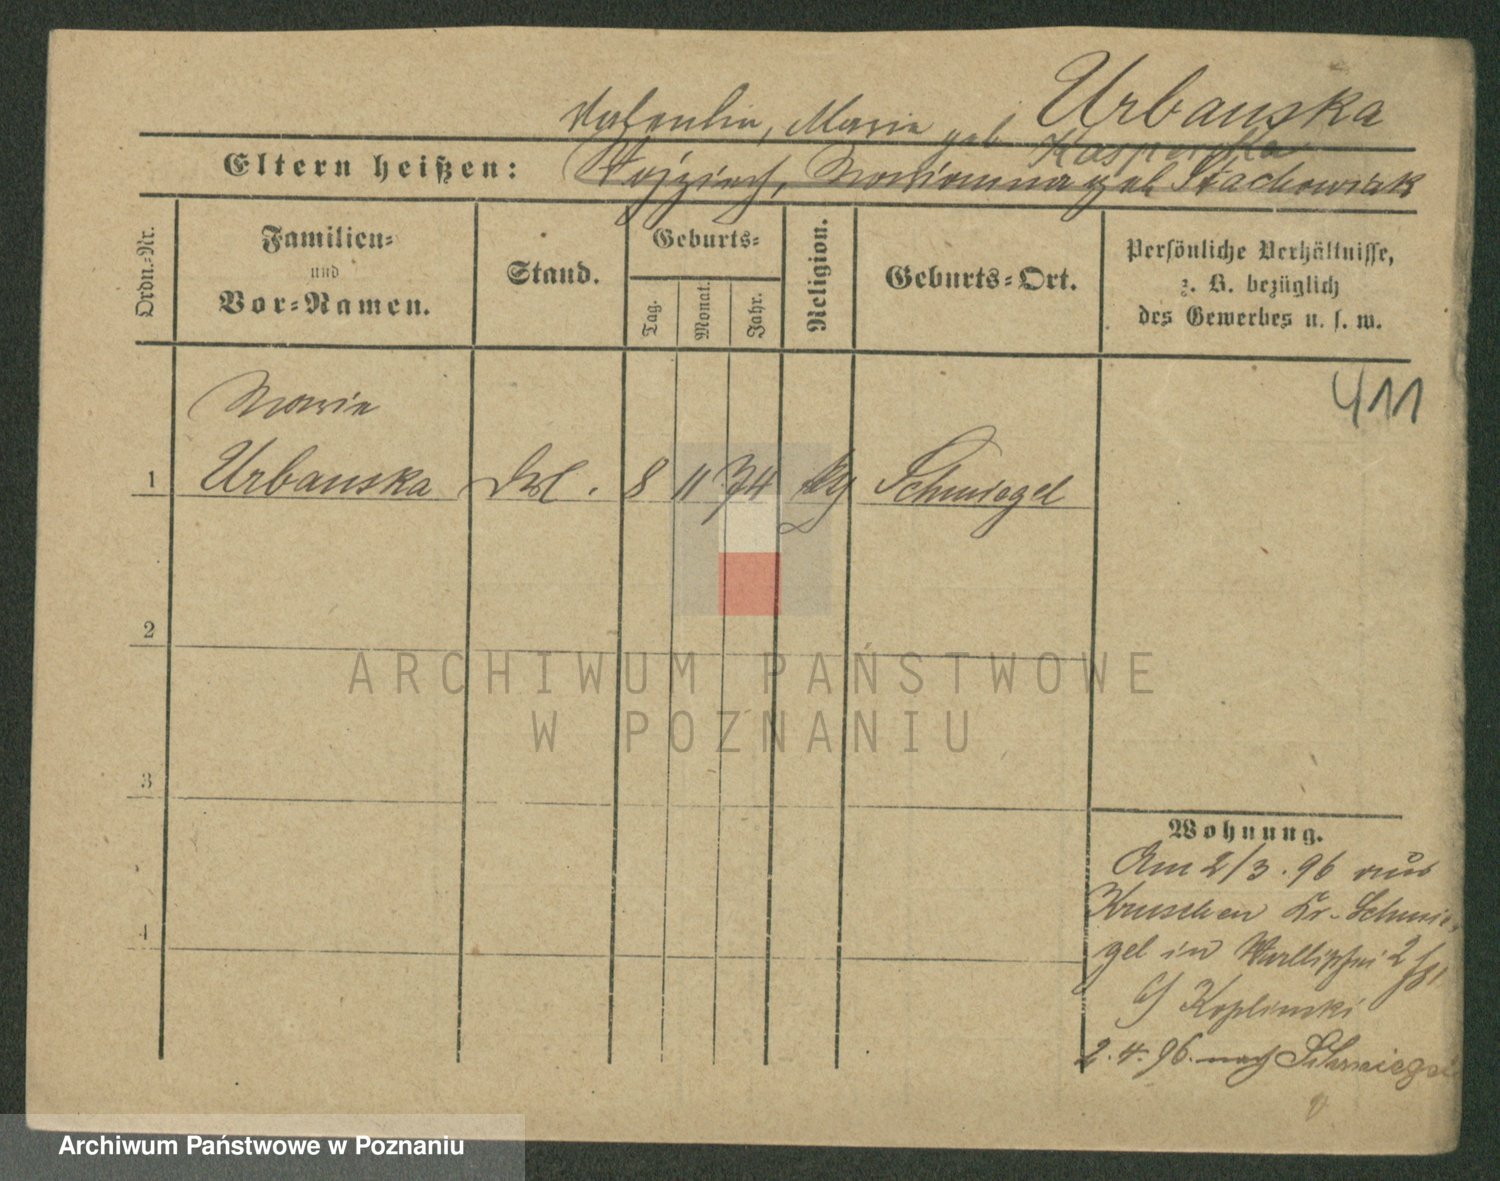 Urbanska
Valentin, Marie geb Kasperska
Eltern heißen: Wojziech, Marianna geb Stachowiak
Ordn.-Nr.
Familien-
und
Vor-Namen.
Stand.
Geburts-
Tag.
Monat.
Jahr.
Religion.
Geburts-Ort.
Persönliche Verhältnisse,
z. B. bezüglich
des Gewerbes u. s. w.
411
Marie
1 Urbanska 8 11 74 Schmiegel
2
3
4
Wohnung.
Am 2/3. 96 aus
Kruschen Kr. Schmie-
gel in 2
b/ Koplinski
2. 4. 96. nach Schmiegel
ARCHIWUM PAŃSTWOWE
W POZNANIU
Archiwum Państwowe w Poznaniu